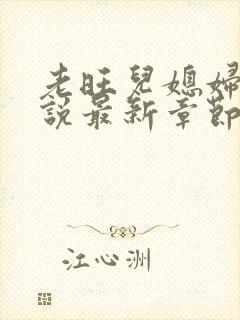 老旺兒媳婦
說最新章節
江心洲